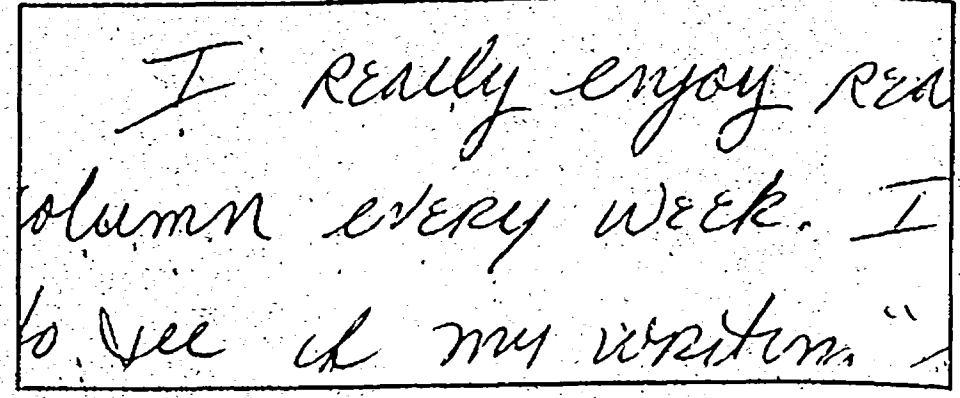 I really enjoy rea
olumn every week. I
to see if my writin."